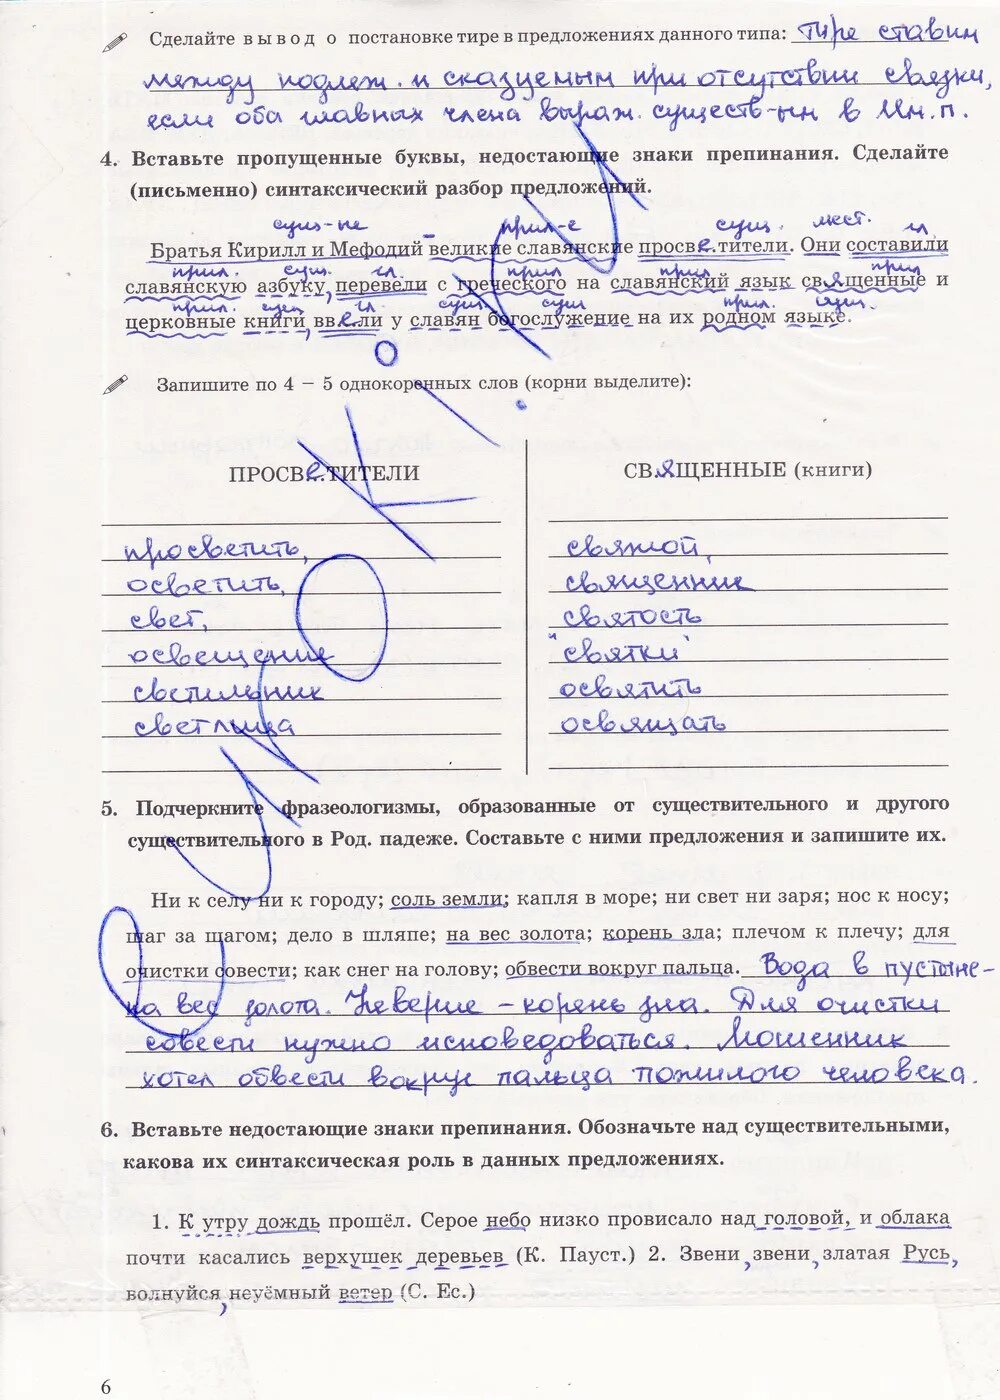 Сделайте вывод о постановке тире в предложениях данного типа: Тире ставим
между подлеж. и сказуемым при отсутствии связки,
если оба главных члена выраж. существ-ым в Им.п.
4. Вставьте пропущенные буквы, недостающие знаки препинания. Сделайте
(письменно) синтаксический разбор предложений.
сущ-ые – прил-е сущ. мест. гл
Братья Кирилл и Мефодий великие славянские просве.тители. Они составили
прил. сущ. гл. прил прил прил
славянскую азбуку, перевели с греческого на славянский язык священные и
прил. сущ гл. сущ сущ прил. сущ.
церковные книги, ввели у славян богослужение на их родном языке.
Запишите по 4 – 5 однокоренных слов (корни выделите):
ПРОСВЕ.ТИТЕЛИ СВЯЩЕННЫЕ (книги)
просветить, святой,
осветить, священник
свет, святость
освещение "святки"
светильник освятить
светлица освящать
5. Подчеркните фразеологизмы, образованные от существительного и другого
существительного в Род. падеже. Составьте с ними предложения и запишите их.
Ни к селу ни к городу; соль земли; капля в море; ни свет ни заря; нос к носу;
шаг за шагом; дело в шляпе; на вес золота; корень зла; плечом к плечу; для
очистки совести; как снег на голову; обвести вокруг пальца. Вода в пустыне-
на вес золота. Неверие – корень зла. Для очистки
совести нужно исповедоваться. Мошенник
хотел обвести вокруг пальца пожилого человека.
6. Вставьте недостающие знаки препинания. Обозначьте над существительными,
какова их синтаксическая роль в данных предложениях.
1. К утру дождь прошёл. Серое небо низко провисало над головой, и облака
почти касались верхушек деревьев (К. Пауст.) 2. Звени, звени, златая Русь,
волнуйся, неуёмный ветер (С. Ес.)
6